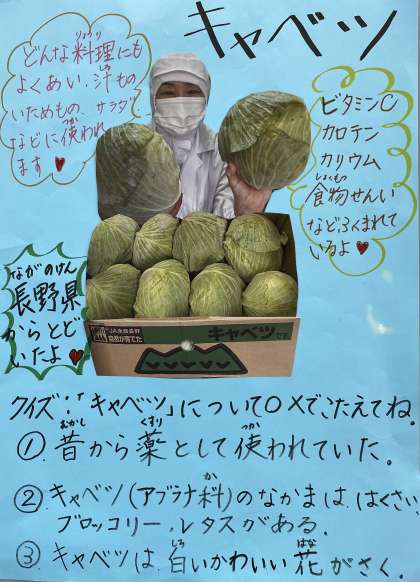 キャベツ
どんな料理にも
りょうり
よくあい、汁もの
しる
いためもの、サラダ
などに使われ
つか
ます♥
ビタミンC
カロテン
カリウム
しょくもつ
食物せんい
などふくまれて
いるよ♥
ながのけん
長野県
からとど
いたよ♥
キャベツ
クイズ：「キャベツ」について○×でこたえてね。
むかし くすり つか
①. 昔から薬として使われていた。
か
②. キャベツ(アブラナ科)のなかまは、はくさい、
ブロッコリー、レタスがある。
しろ はな
③. キャベツは白いかわいい花がさく。